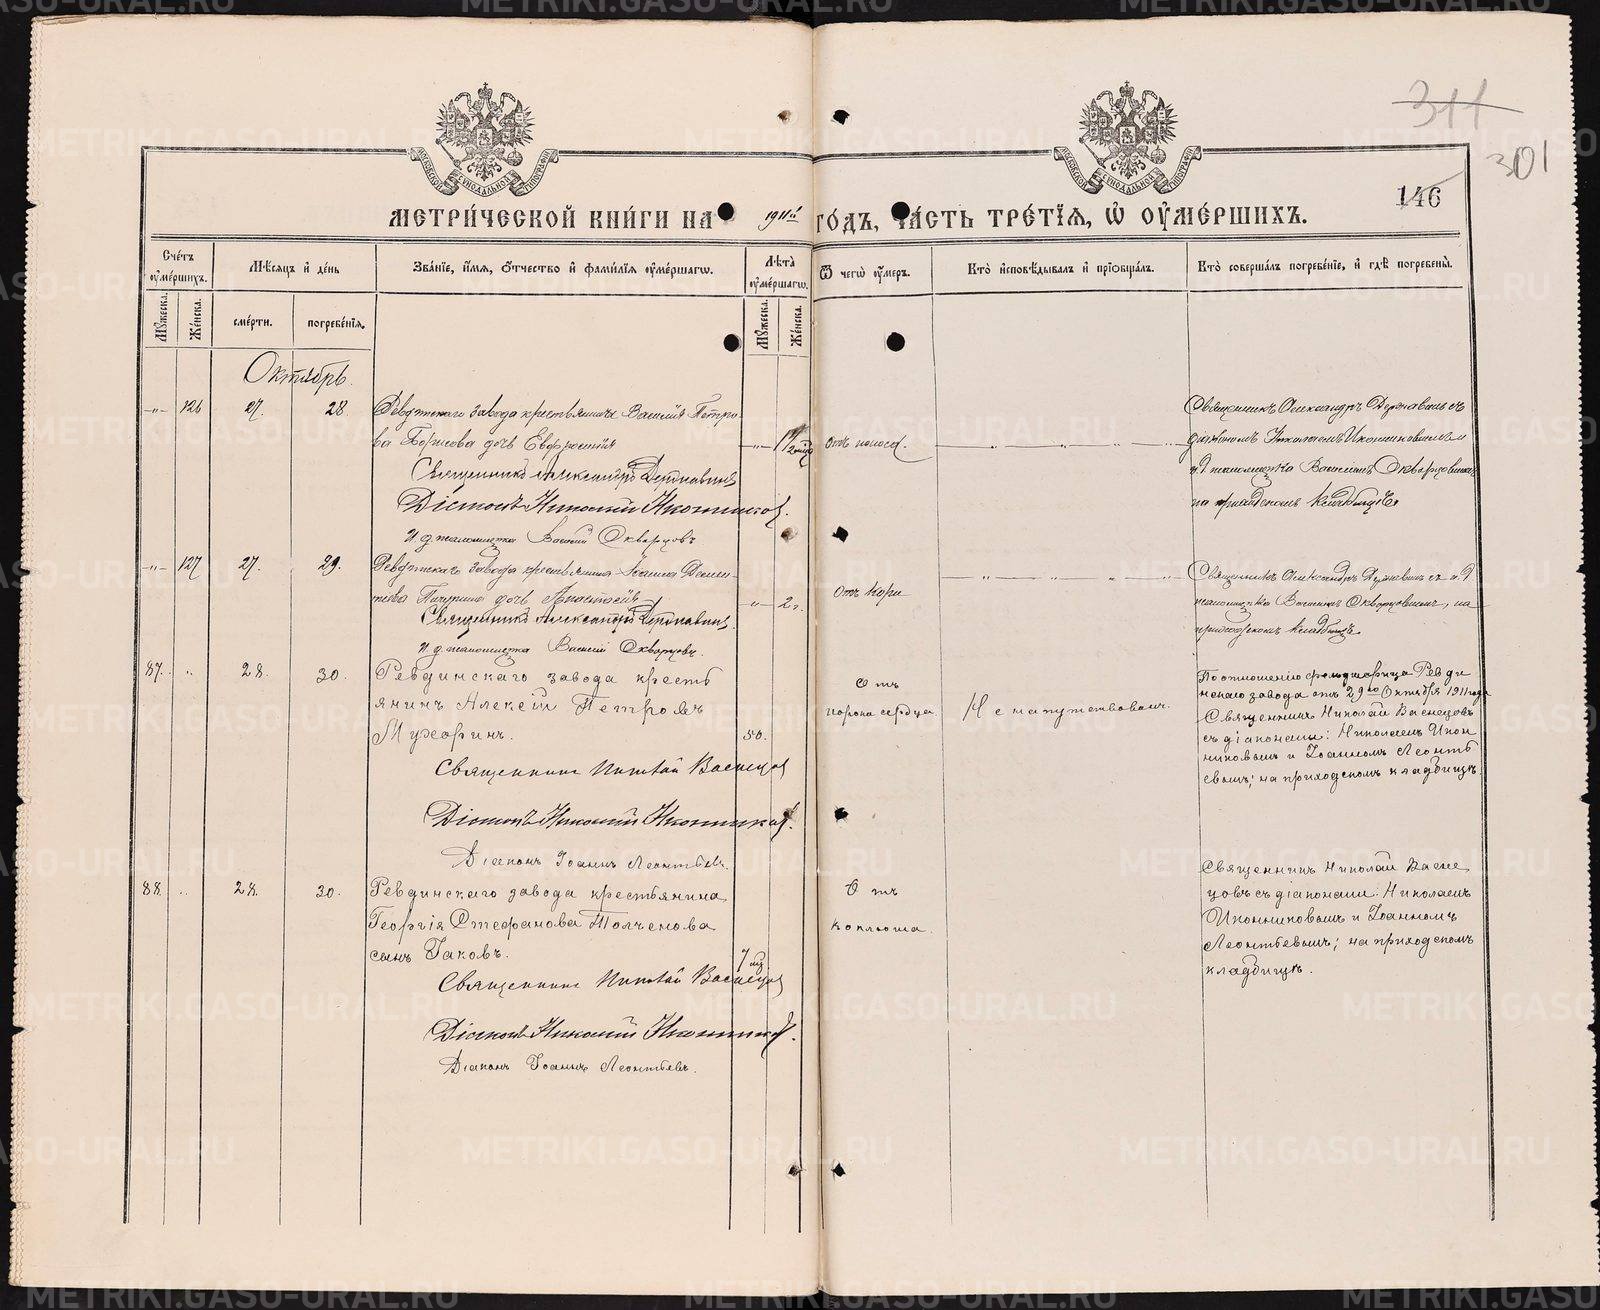 311
301
146
МЕТРИ́ЧЕСКОЙ КНИ́ГИ НА 1911й ГО́ДЪ, ЧА́СТЬ ТРЕ́ТІѦ, Ѡ ОУ҆МЕ́РШИХЪ.
Сче́тъ оу҆ме́ршихъ.
Мѣ́сѧцъ и҆ де́нь
Зва́нїе, и҆́мѧ, ѻ҆́тчество и҆ фами́лїѧ оу҆ме́ршагѡ.
Лѣ́та оу҆ме́ршагѡ.
Ѿ чегѡ̀ оу҆́меръ.
Кто̀ и҆сповѣ́дывалъ и҆ прїѡбща́лъ.
Кто̀ соверша́лъ погребе́нїе, и҆ гдѣ̀ погребены̀.
Мꙋ́жеска.
Же́нска.
сме́рти.
погребе́нїѧ.
Мꙋ́жеска.
Же́нска.
Октябрь.
-"- 126 27. 28 Ревдинскаго завода крестьянина Василія Петро-
ва дочь Евфросинія
Священникъ Александръ Державинъ
Діаконъ Николай Иконниковъ.
И. д. псаломщика Василій Скварцовъ
От поноса.
Священникъ Александръ Державинъ съ
діакономъ Николаемъ Иконниковымъ и
и. д. псаломщика Василіемъ Скварцовымъ
на приходскомъ кладбищѣ
-"- 127 27. 29. Ревдинскаго завода крестьянина
дочь Анастасія -"- 2 г.
Священникъ Александръ Державинъ.
И. д. псаломщика Василій Скварцовъ.
Отъ кори
Священникъ Александръ Державинъ съ и. д
псаломщика Василіемъ Скварцовымъ, на
приходскомъ кладбищѣ
87. " 28. 30. Ревдинскаго завода кресть
янинъ Алексѣй Петровъ
Мухоринъ. 50.
Священникъ Николай Васнецов
Діаконъ Николай Иконников.
Діаконъ Іоаннъ Леонтьевъ.
Отъ
порока сердца.
Не напутствованъ.
По отношенію фельдшерица Ревди
нскаго завода отъ 29го Октября 1911 года
Священникъ Николай Васнецовъ
съ діаконами: Николаемъ Икон
никовымъ и Іоанномъ Леонть
евымъ; на приходскомъ кладбищѣ.
88. " 28. 30. Ревдинскаго завода крестьянина
Георгія Стефанова Толченова
сынъ Іаковъ. 7 мц
Священникъ Николай Васнецов
Діаконъ Николай Иконников.
Діаконъ Іоаннъ Леонтьевъ.
Отъ
коклюша.
Священникъ Николай Васне
цовъ съ діаконами: Николаемъ
Иконниковымъ и Іоанномъ
Леонтьевымъ; на приходскомъ
кладбищѣ.
METRIKI.GASO-URAL.RU